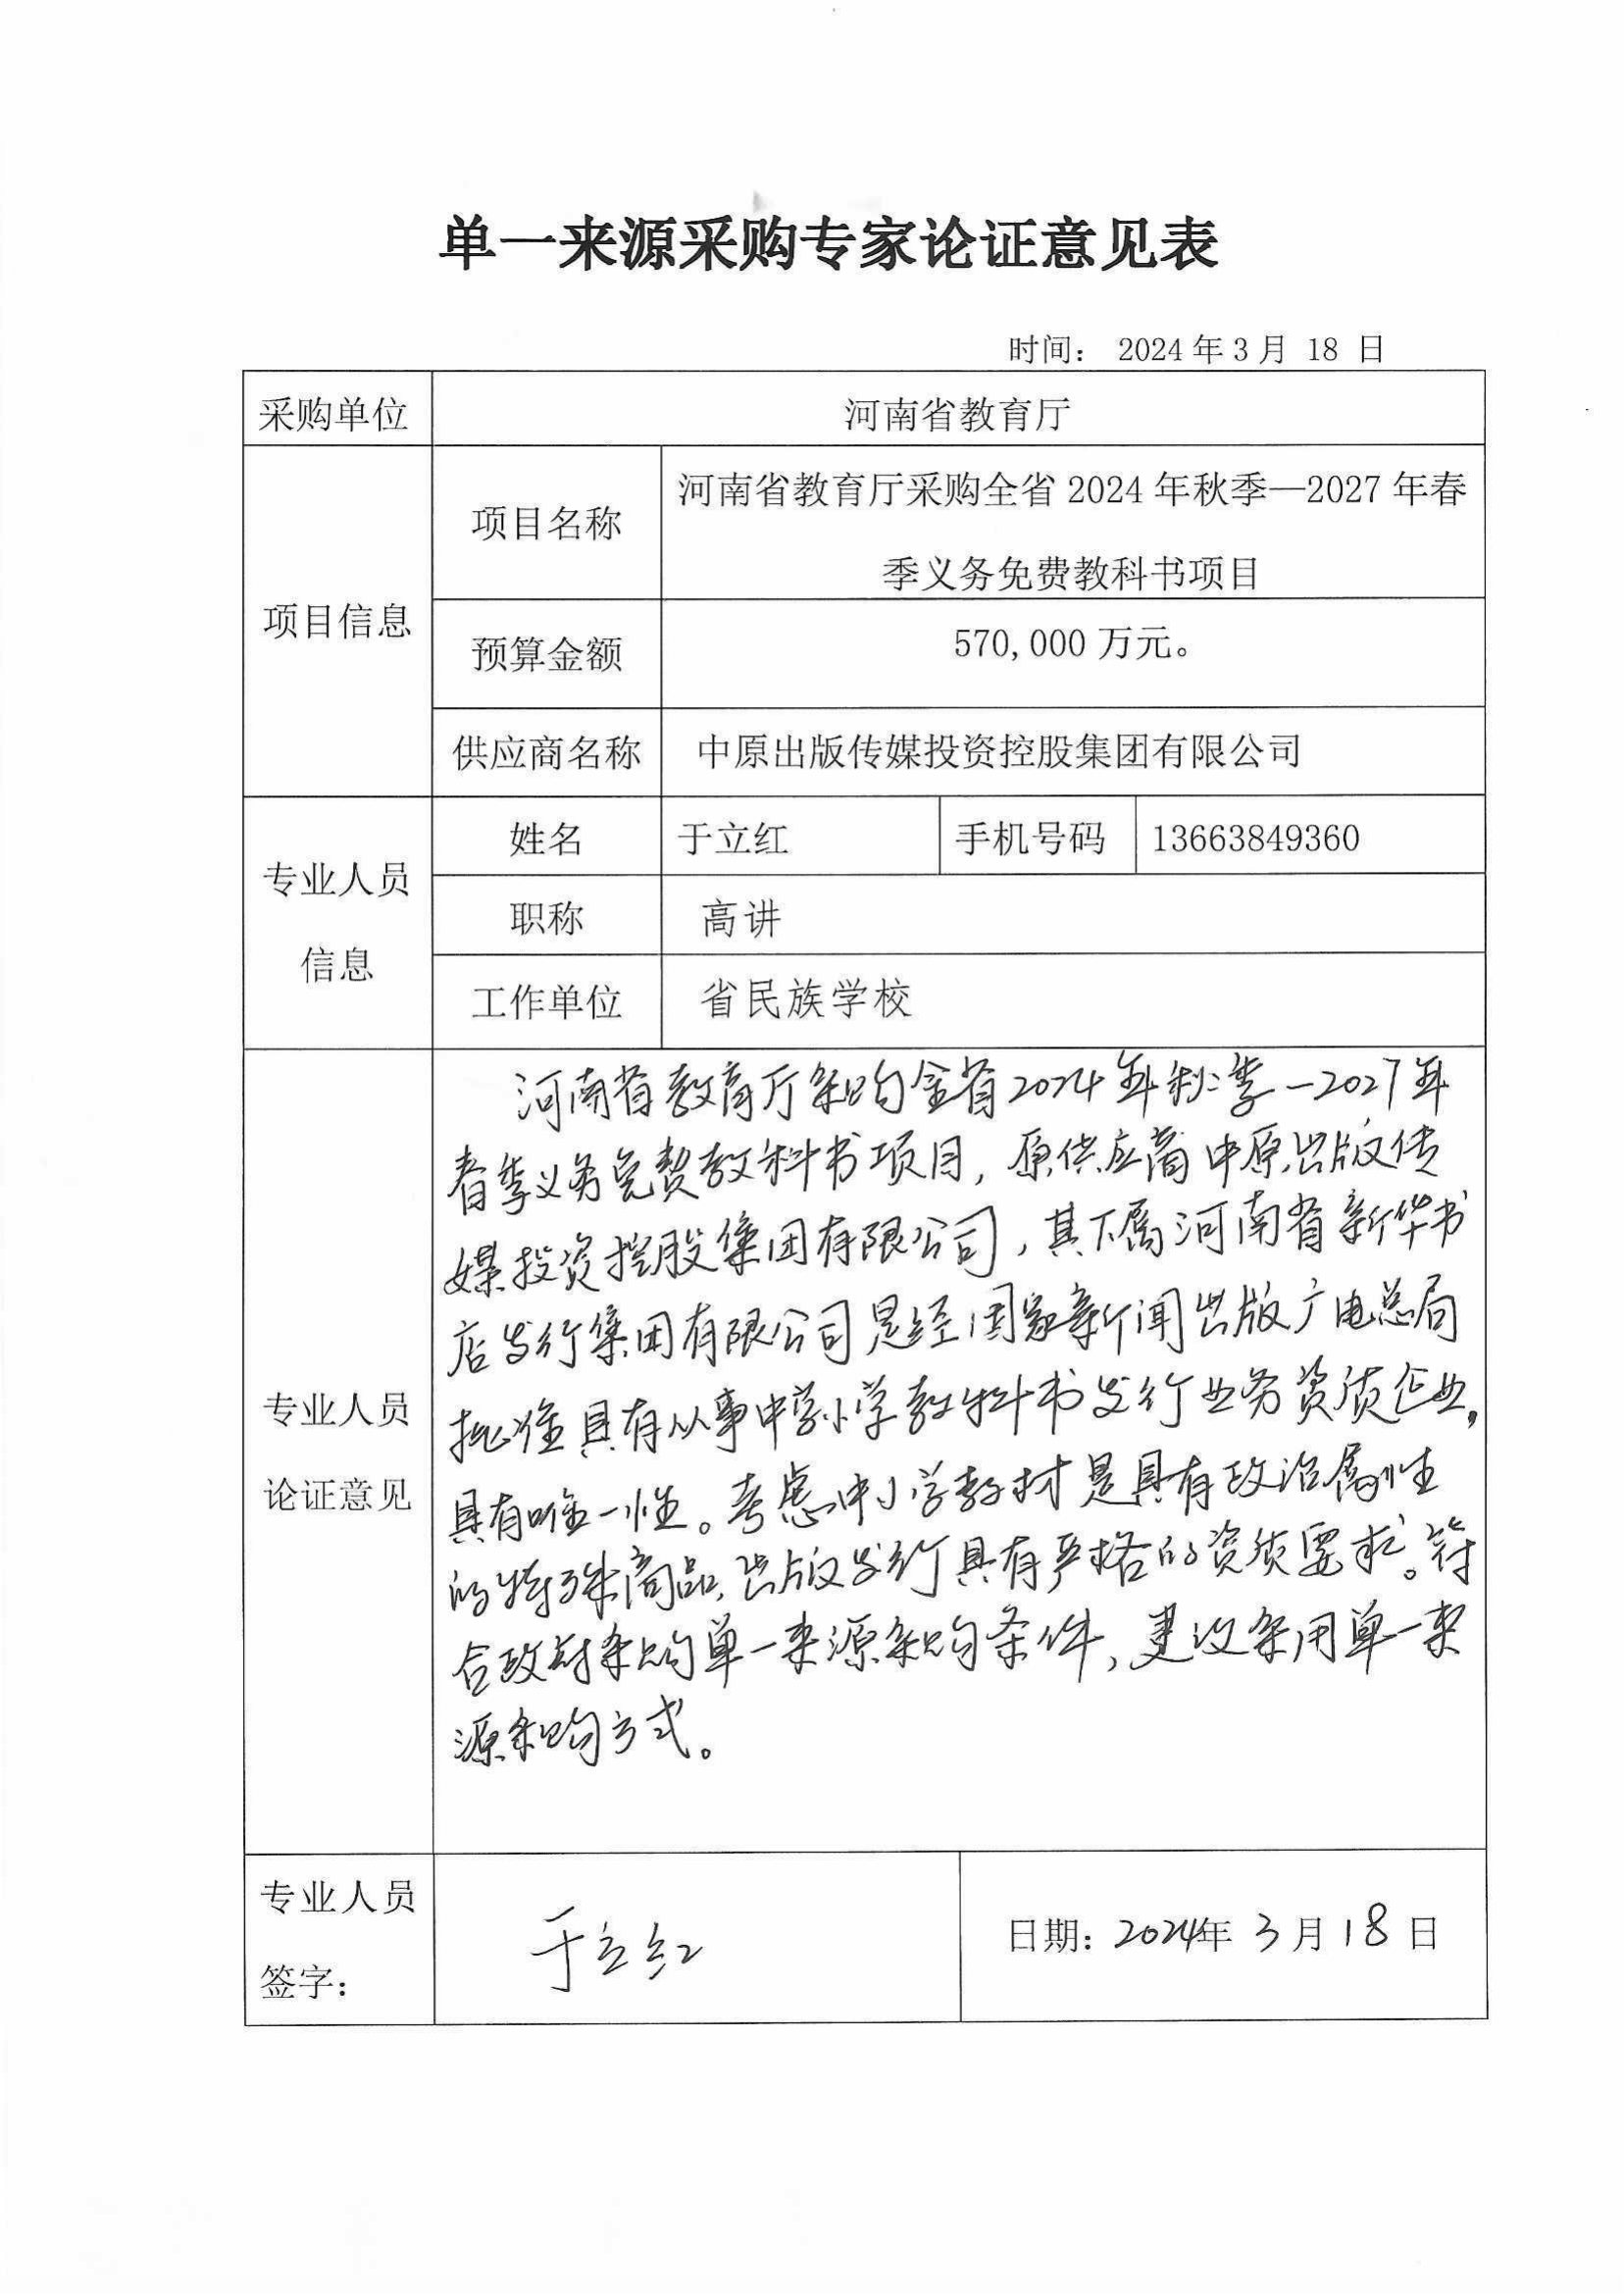 单一来源采购专家论证意见表
时间： 2024 年 3 月 18 日
采购单位
河南省教育厅
项目信息
项目名称
河南省教育厅采购全省 2024 年秋季—2027 年春
季义务免费教科书项目
预算金额
570,000 万元。
供应商名称
中原出版传媒投资控股集团有限公司
专业人员
信息
姓名
于立红
手机号码
13663849360
职称
高讲
工作单位
省民族学校
专业人员
论证意见
河南省教育厅采购全省2024年秋季-2027年
春季义务免费教科书项目，原供应商中原出版传
媒投资控股集团有限公司，其下属河南省新华书
店发行集团有限公司是经国家新闻出版广电总局
批准具有从事中学小学教科书发行业务资质企业，
具有唯一性。考虑中小学教材是具有政治属性
的特殊商品、出版发行具有严格的资质要求。符
合政府采购单一来源采购条件，建议采用单一来
源采购方式。
专业人员
签字：
于立红
日期：2024年 3 月 18 日